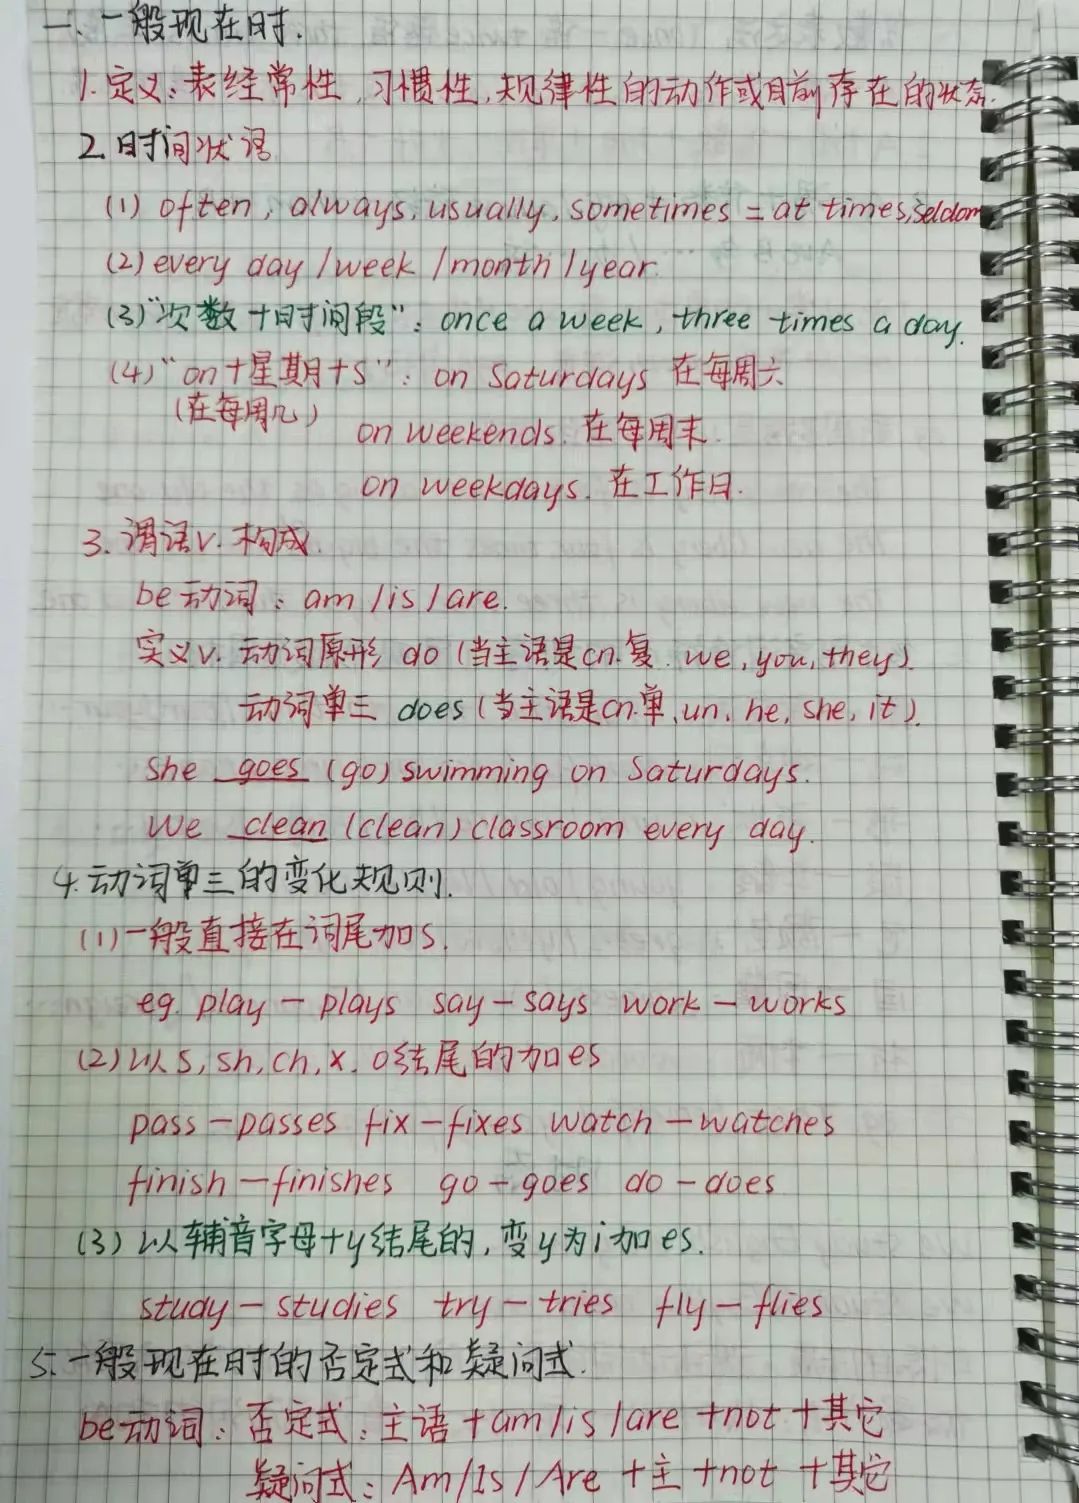 一、一般现在时.
1.定义:表经常性,习惯性,规律性的动作或目前存在的状态.
2.时间状语
(1) often, always, usually, sometimes = at times, seldom
(2) every day /week /month /year.
(3)"次数+时间段": once a week, three times a day.
(4)"on+星期+s": on Saturdays 在每周六
(在每周几)
on weekends. 在每周末.
on weekdays. 在工作日.
3.谓语v.构成.
be动词: am /is /are.
实义v. 动词原形 do (当主语是cn.复. we, you, they).
动词单三 does (当主语是cn.单, un. he, she, it).
She goes (go) swimming on Saturdays.
We clean (clean) classroom every day.
4.动词单三的变化规则.
(1)一般直接在词尾加s.
eg. play - plays say - says work - works
(2)以s, sh, ch, x, o结尾的加es
pass - passes fix - fixes watch - watches
finish - finishes go - goes do - does
(3)以辅音字母+y结尾的,变y为i加es.
study - studies try - tries fly - flies
5.一般现在时的否定式和疑问式.
be动词: 否定式: 主语 + am /is /are + not + 其它
疑问式: Am /Is / Are + 主 + not + 其它